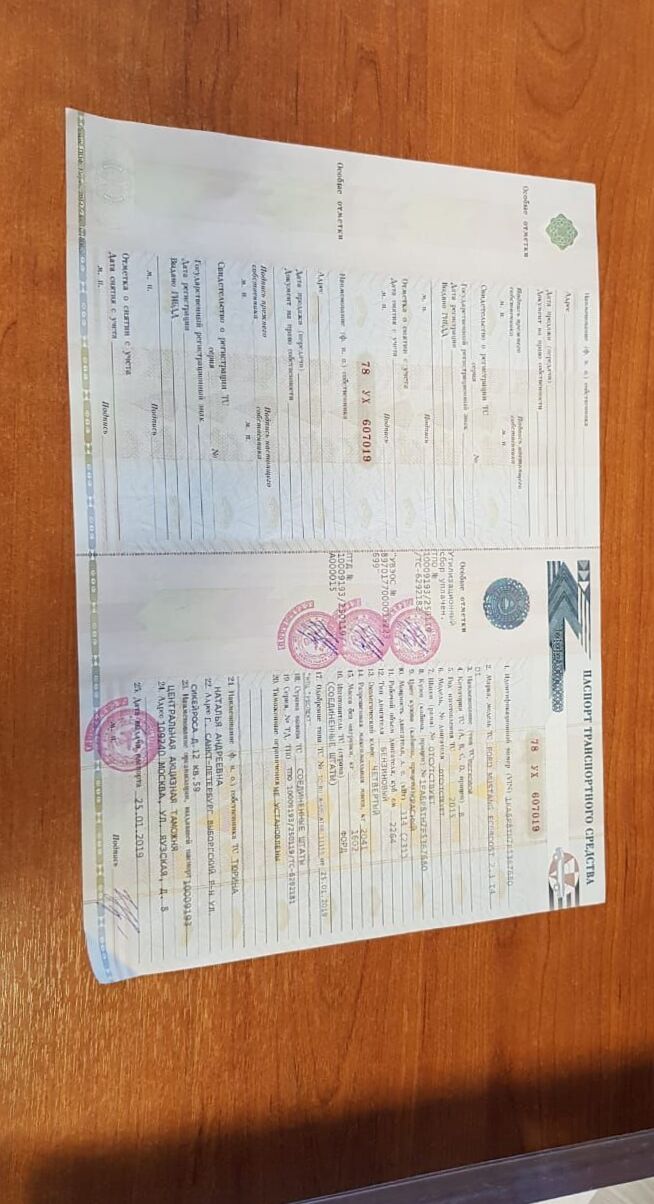 Особые отметки
Наименование (ф. и. о.) собственника
Адрес
Дата продажи (передачи)
Документ на право собственности
Подпись прежнего собственника
Подпись настоящего собственника
М. П.
М. П.
Свидетельство о регистрации ТС
серия №
Государственный регистрационный знак
Дата регистрации
Выдано ГИБДД
М. П.
Подпись
Отметка о снятии с учета
Дата снятия с учета
М. П.
Подпись
78 УХ 607019
Особые отметки
Наименование (ф. и. о.) собственника
Адрес
Дата продажи (передачи)
Документ на право собственности
Подпись прежнего собственника
Подпись настоящего собственника
М. П.
М. П.
Свидетельство о регистрации ТС
серия №
Государственный регистрационный знак
Дата регистрации
Выдано ГИБДД
М. П.
Подпись
Отметка о снятии с учета
Дата снятия с учета
М. П.
Подпись
ПАСПОРТ ТРАНСПОРТНОГО СРЕДСТВА
78 УХ 607019
1. Идентификационный номер (VIN)
2. Марка, модель ТС FORD MUSTANG ECOBOOST 2.3 I4
3. Наименование (тип ТС) ЛЕГКОВОЙ
4. Категория ТС (A, B, C, D, прицеп) B
5. Год изготовления ТС 2015
6. Модель, № двигателя ОТСУТСТВУЕТ
7. Шасси (рама) № ОТСУТСТВУЕТ
8. Кузов (кабина, прицеп) №
9. Цвет кузова (кабины, прицепа) КРАСНЫЙ
10. Мощность двигателя, л. с. (кВт)
11. Рабочий объем двигателя, куб. см 2264
12. Тип двигателя БЕНЗИНОВЫЙ
13. Экологический класс ЧЕТВЕРТЫЙ
14. Разрешенная максимальная масса, кг 2041
15. Масса без нагрузки, кг 1602
16. Изготовитель ТС (страна) ФОРД
(СОЕДИНЕННЫЕ ШТАТЫ)
17. Одобрение типа ТС № от 25.01.2019
18. Страна вывоза ТС СОЕДИНЕННЫЕ ШТАТЫ
19. Серия, № ТД, ТПО ТПО 10009193/250119/ТС-6292181
20. Таможенные ограничения НЕ УСТАНОВЛЕНЫ
21. Наименование (ф. и. о.) собственника ТС ТЮРИНА
НАТАЛЬЯ АНДРЕЕВНА
22. Адрес Г. САНКТ-ПЕТЕРБУРГ, ВЫБОРГСКИЙ Р-Н, УЛ.
СИКЕЙРОСА Д.12 КВ.59
23. Наименование организации, выдавшей паспорт 10009193
ЦЕНТРАЛЬНАЯ АКЦИЗНАЯ ТАМОЖНЯ
24. Адрес 109240 МОСКВА, УЛ. ЯУЗСКАЯ, Д. 8
25. Дата выдачи паспорта 25.01.2019
М. П.
Подпись
Особые отметки
Утилизационный
сбор уплачен,
ТПО №
10009193/250119
/ТС-6292182
ПТД №
10009193/250119